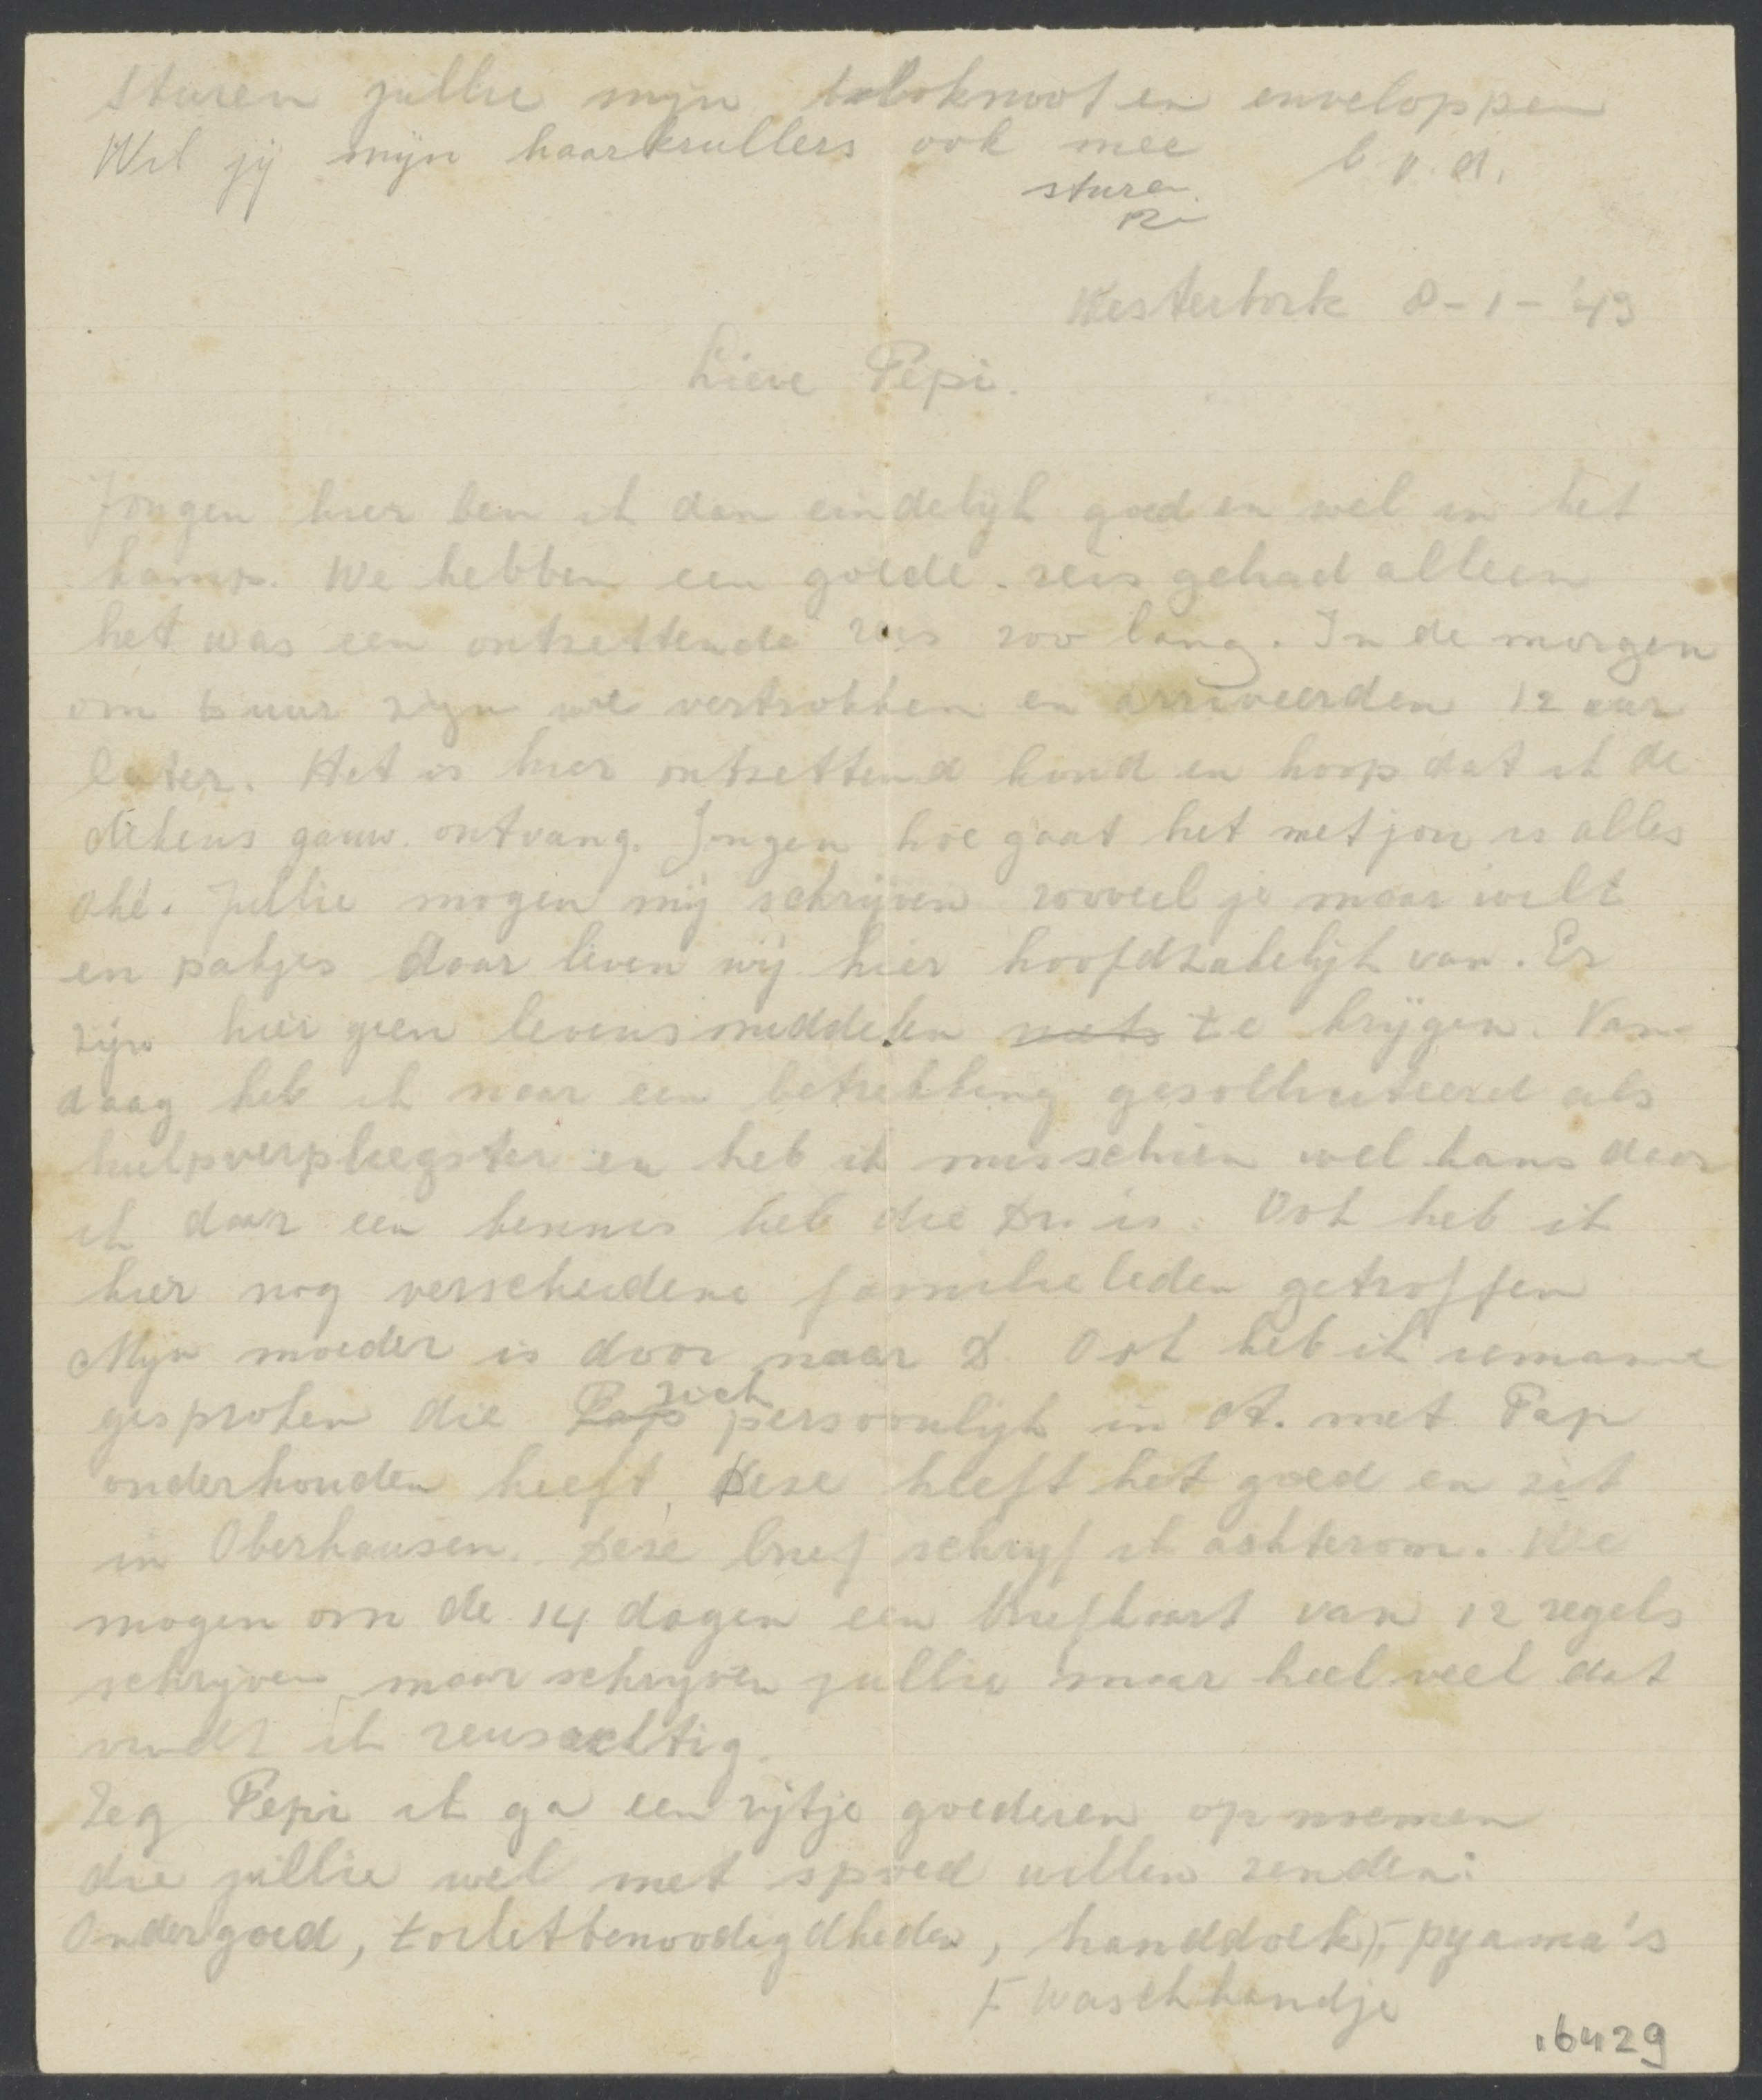 sturen jullie mijn bloknoot en enveloppen
Wil jij mijn haarkrullers ook mee b.v.d.
sturen.
Westerbork 8-1-'43
Lieve Pepi.
Jongen hier ben ik dan eindelijk goed en wel in het
kamp. We hebben een goede reis gehad alleen
het was een ontzettende reis zoo lang. In de morgen
om 6 uur zijn we vertrokken en arriveerden 12 uur
later. Het is hier ontzettend koud en hoop dat ik de
dekens gauw ontvang. Jongen hoe gaat het met jou is alles
oké. Jullie mogen mij schrijven zooveel je maar wilt
en pakjes daar leven wij hier hoofdzakelijk van. Er
zijn hier geen levensmiddelen niets te krijgen. Van-
daag heb ik naar een betrekking gesolliciteerd als
hulpverpleegster en heb ik misschien wel kans daar
ik daar een kennis heb die Dr. is. Ook heb ik
hier nog verscheidene familieleden getroffen
Mijn moeder is door naar D. Ook heb ik iemand
gesproken die Paps zich persoonlijk in A. met Pap
onderhouden heeft. Deze heeft het goed en zit
in Oberhausen. Deze brief schrijf ik achterom. We
mogen om de 14 dagen een briefkaart van 12 regels
schrijven maar schrijven jullie maar heel veel dat
vindt ik reusachtig.
Zeg Pepi ik ga een rijtje goederen opnoemen
die jullie wel met spoed willen zenden:
Ondergoed, toiletbenoodigdheden, handdoek, pyama's
+ waschhandje
16429